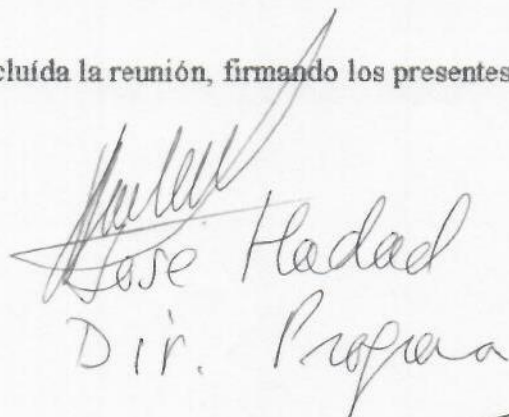 cluída la reunión, firmando los presentes
Jose Hadad
Dir.